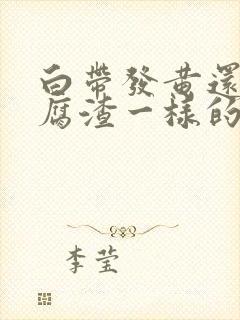 白帶發黄還
腐渣一樣的
李莹